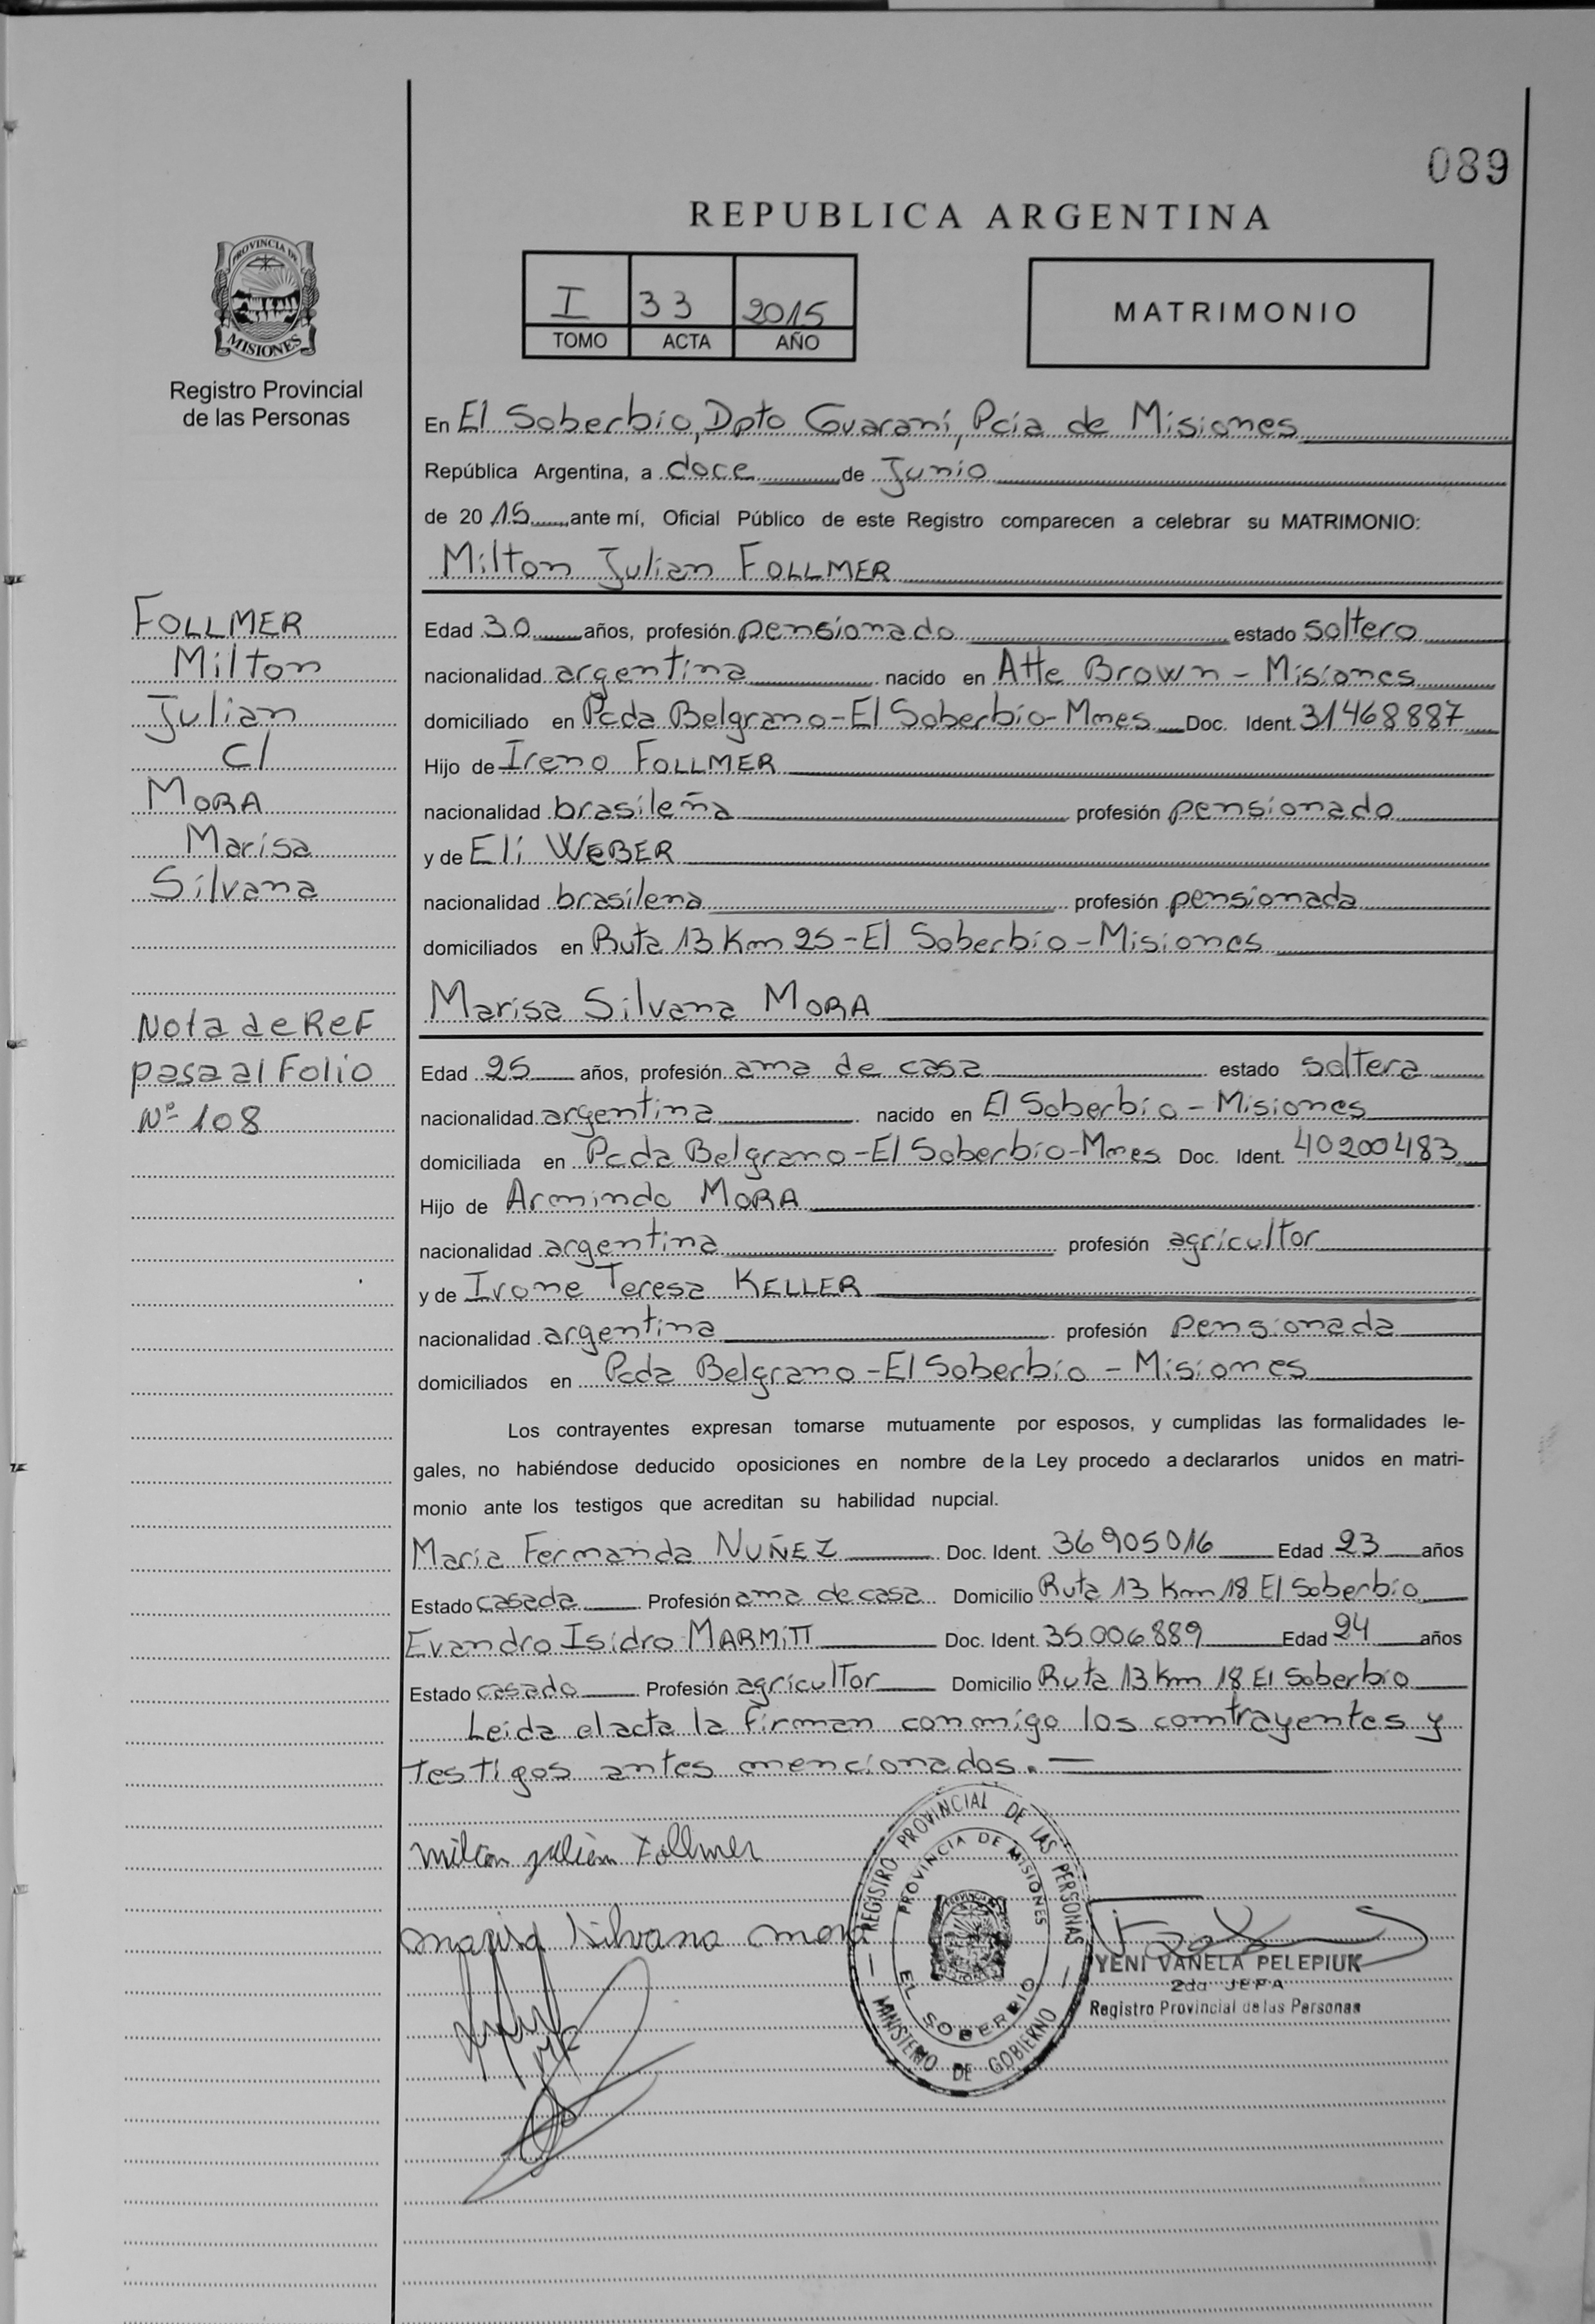 089
REPUBLICA ARGENTINA
PROVINCIA DE
MISIONES
Registro Provincial
de las Personas
I 33 2015
TOMO ACTA AÑO
MATRIMONIO
En El Soberbio, Dpto Guaraní, Pcia de Misiones
República Argentina, a doce de Junio
de 20 15 ante mí, Oficial Público de este Registro comparecen a celebrar su MATRIMONIO:
Milton Julian FOLLMER
FOLLMER
Milton
Julian
c/
MORA
Marisa
Silvana
Nota de Ref
pasa al Folio
Nº 108
Edad 30 años, profesión pensionado estado soltero
nacionalidad argentina nacido en Atte Brown - Misiones
domiciliado en Pcda Belgrano - El Soberbio - Mnes Doc. Ident. 31468887
Hijo de Ireno FOLLMER
nacionalidad brasileña profesión pensionado
y de Eli WEBER
nacionalidad brasilena profesión pensionada
domiciliados en Ruta 13 Km 25 - El Soberbio - Misiones
Marisa Silvana MORA
Edad 25 años, profesión ama de casa estado soltera
nacionalidad argentina nacido en El Soberbio - Misiones
domiciliada en Pcda Belgrano - El Soberbio - Mnes Doc. Ident. 40200483
Hijo de Armindo MORA
nacionalidad argentina profesión agricultor
y de Ivone Teresa KELLER
nacionalidad argentina profesión pensionada
domiciliados en Pcda Belgrano - El Soberbio - Misiones
Los contrayentes expresan tomarse mutuamente por esposos, y cumplidas las formalidades le-
gales, no habiéndose deducido oposiciones en nombre de la Ley procedo a declararlos unidos en matri-
monio ante los testigos que acreditan su habilidad nupcial.
Maria Fernanda NUÑEZ Doc. Ident. 36905016 Edad 23 años
Estado casada Profesión ama de casa Domicilio Ruta 13 Km 18 El Soberbio
Evandro Isidro MARMITT Doc. Ident. 35006889 Edad 24 años
Estado casado Profesión agricultor Domicilio Ruta 13 Km 18 El Soberbio
Leida el acta la firman conmigo los contrayentes y
testigos antes mencionados.
Milton Julian Follmer
marisa Silvana mora
REGISTRO PROVINCIAL DE LAS PERSONAS
MINISTERIO DE GOBIERNO
PROVINCIA DE MISIONES
EL SOBERBIO
YENI VANELA PELEPIUK
2da JEFA
Registro Provincial de las Personas